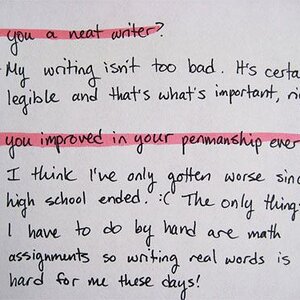 you a neat writer?
My writing isn't too bad. It's certa
legible and that's what's important, ri
you improved in your penmanship ever
I think I've only gotten worse sinc
high school ended. :( The only thing
I have to do by hand are math
assignments so writing real words is
hard for me these days!